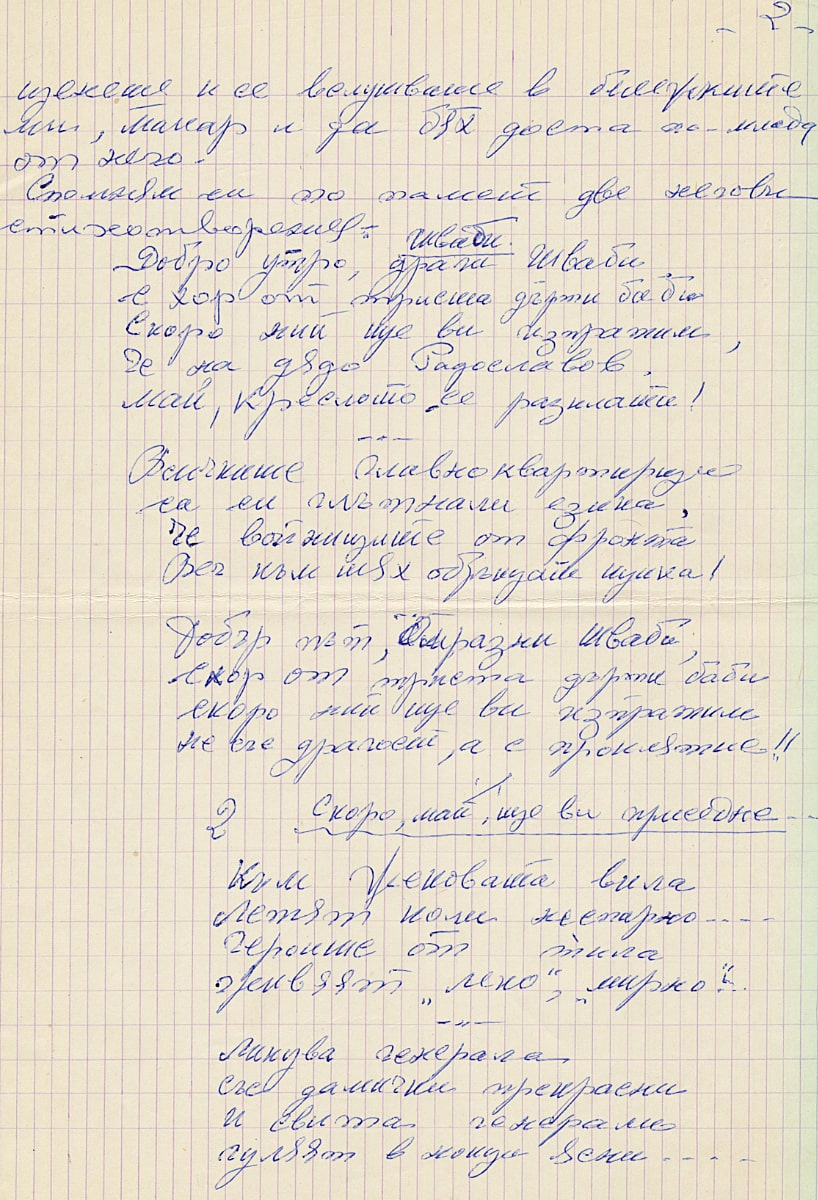 - 2 -
ценеше и се вслушваше в бележките
ми, макар и да бях доста по-млада
от него.
Спомням си по памет две негови
стихотворения:
Шваби.
Добро утро, драги Шваби
с хор от триста дърти баби
Скоро ний ще ви изпратим,
Че на дядо Радославов,
май, креслото се разклати!
-"-
Всичките главноквартирци
са си глътнали езика,
Че войниците от фронта
Веч към тях обръщат щика!
Добър път, омразни Шваби,
с хор от триста дърти баби
скоро ний ще ви изпратим
не със драгост, а с проклятие!!
2 Скоро, май, ще ви приседне...
Към Жековата вила
Летят коли неспирно ----
Героите от тила
живеят „леко“, „мирно“.
-"-
Минува генерала
със дамички прекрасни
и свита генерали
гуляят в нощи ясни ----